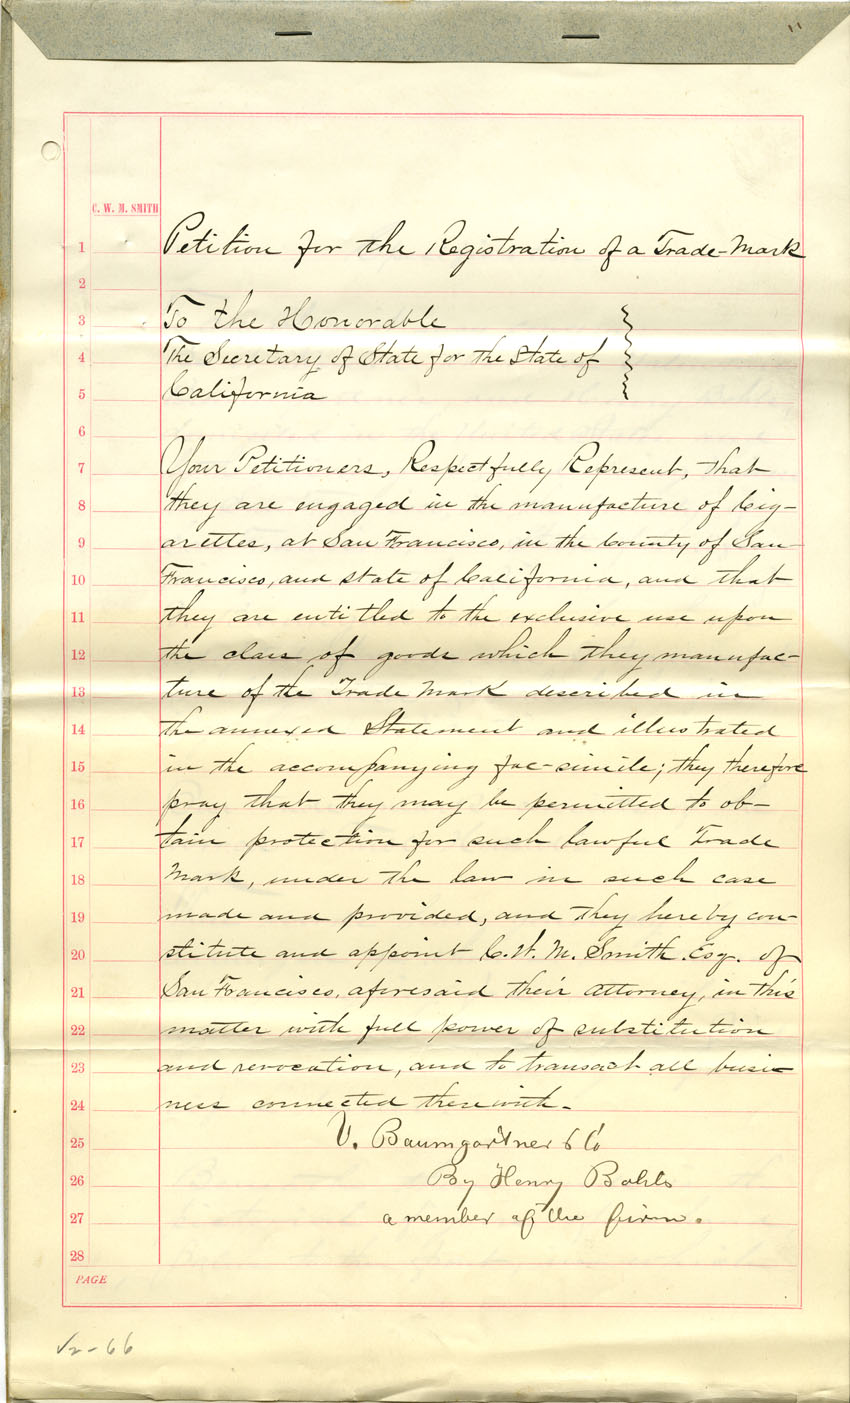 "
C. W. M. SMITH
1 Petition for the Registration of a Trade-Mark
2
3 To the Honorable
4 The Secretary of State for the State of
5 California
6
7 Your Petitioners, Respectfully Represent, that
8 they are engaged in the manufacture of Cig-
9 arettes, at San Francisco, in the County of San
10 Francisco, and state of California, and that
11 they are entitled to the exclusive use upon
12 the class of goods which they manufac-
13 ture of the Trade Mark described in
14 the annexed Statement and illustrated
15 in the accompanying fac-simile; they therefore
16 pray that they may be permitted to ob-
17 tain protection for such lawful Trade
18 Mark, under the law in such case
19 made and provided, and they hereby con-
20 stitute and appoint C. W. M. Smith. Esq. of
21 San Francisco, aforesaid their Attorney, in this
22 matter with full power of substitution
23 and revocation, and to transact all busi-
24 ness connected therewith.
25 V. Baumgartner & Co
26 By Henry Bohls
27 a member of the firm.
28
PAGE